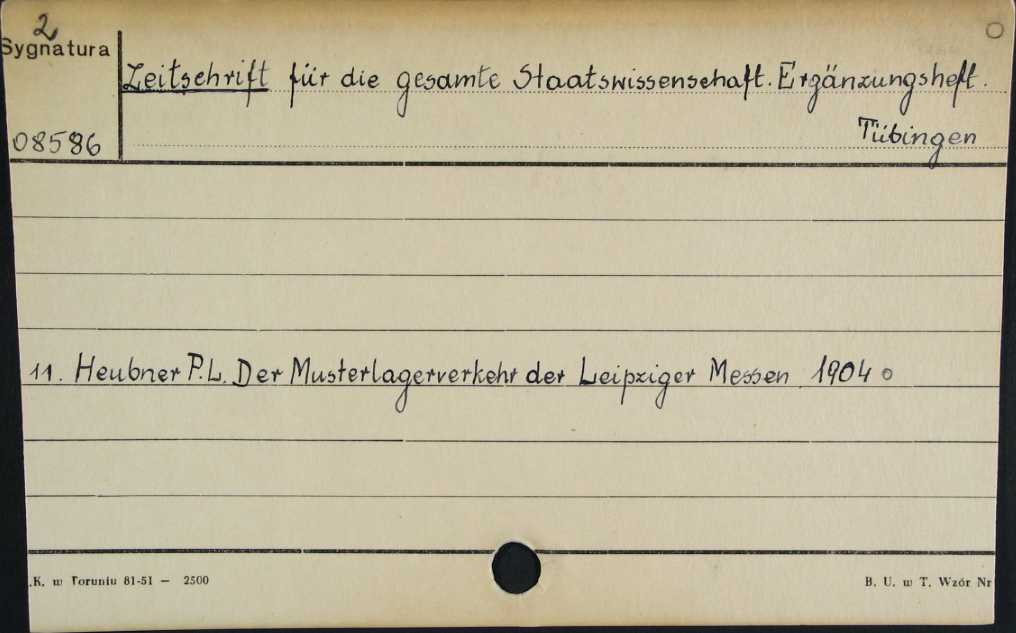 2
Sygnatura
Zeitschrift für die gesamte Staatswissenschaft. Ergänzungsheft.
08586
Tübingen
11. Heubner P.L. Der Musterlagerverkehr der Leipziger Messen. 1904
.K. w Toruniu 81-51 — 2500
B. U. w T. Wzór Nr